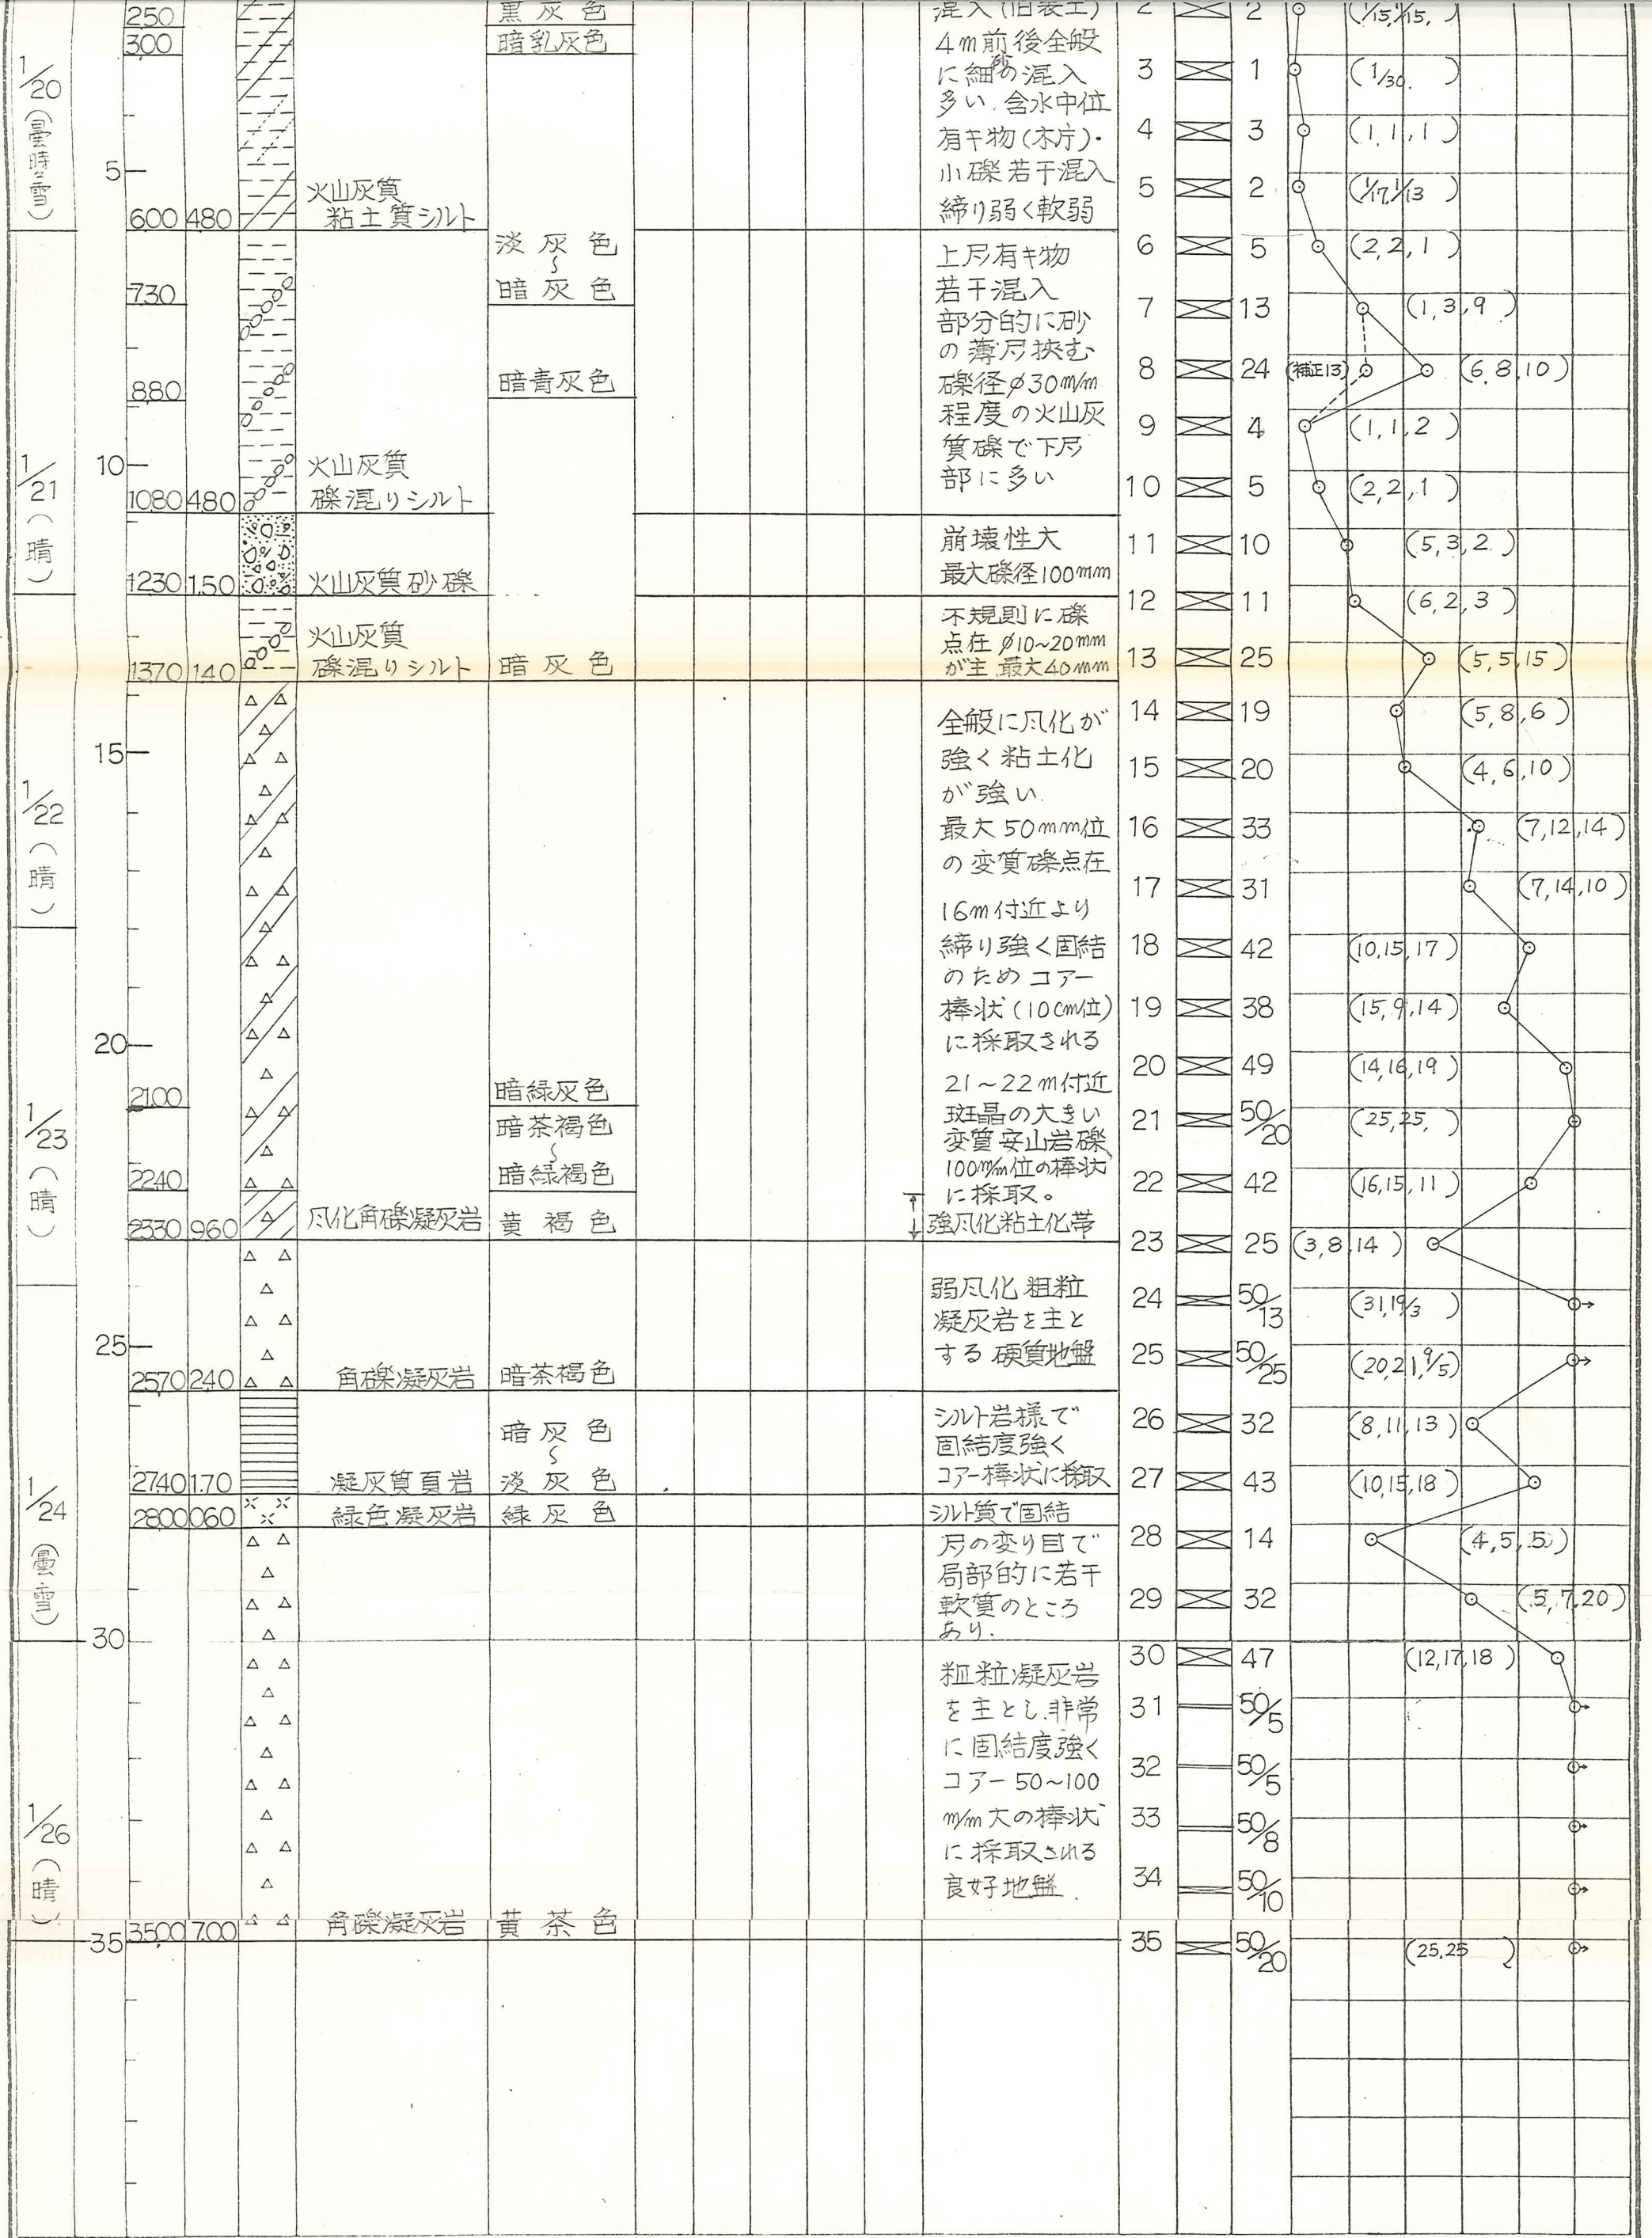 1/20
(曇時々雪)
1/21
(晴)
1/22
(晴)
1/23
(晴)
1/24
(曇雪)
1/26
(晴)
5
10
15
20
25
30
35
2.50
3.00
6.00 4.80
7.30
8.80
10.80 4.80
12.30 1.50
13.70 1.40
21.00
22.40
23.30 9.60
25.70 2.40
27.40 1.70
28.00 0.60
35.00 7.00
火山灰質
粘土質シルト
火山灰質
礫混りシルト
火山灰質砂礫
火山灰質
礫混りシルト
風化角礫凝灰岩
角礫凝灰岩
凝灰質頁岩
緑色凝灰岩
角礫凝灰岩
黒灰色
暗乳灰色
淡灰色
〜
暗灰色
暗青灰色
暗灰色
暗緑灰色
暗茶褐色
〜
暗緑褐色
黄褐色
暗茶褐色
暗灰色
〜
淡灰色
緑灰色
黄茶色
混入(旧表土)
4m前後全般
に細砂の混入
多い.含水中位
有キ物(木片)・
小礫若干混入
締り弱く軟弱
上层有キ物
若干混入
部分的に砂
の薄层挟む
礫径φ30m/m
程度の火山灰
質礫で下层
部に多い
崩壊性大
最大礫径100mm
不規則に礫
点在 φ10~20mm
が主.最大40mm
全般に風化が
強く粘土化
が強い.
最大50mm位
の変質礫点在
16m付近より
締り強く固結
のためコアー
棒状(10cm位)
に採取される
21~22m付近
斑晶の大きい
変質安山岩礫
100m/m位の棒状
に採取。
強風化粘土化帯
弱風化粗粒
凝灰岩を主と
する硬質地盤
シルト岩様で
固結度強く
コアー棒状に採取
シルト質で固結
层の変り目で
局部的に若干
軟質のところ
あり.
粗粒凝灰岩
を主とし.非常
に固結度強く
コアー50~100
m/m大の棒状
に採取される
良好地盤.
2 2 (1/15,1/15, )
3 1 (1/30. )
4 3 (1,1,1)
5 2 (1/17,1/13)
6 5 (2,2,1)
7 13 (1,3,9)
8 24 (補正13) (6,8,10)
9 4 (1,1,2)
10 5 (2,2,1)
11 10 (5,3,2)
12 11 (6,2,3)
13 25 (5,5,15)
14 19 (5,8,6)
15 20 (4,6,10)
16 33 (7,12,14)
17 31 (7,14,10)
18 42 (10,15,17)
19 38 (15,9,14)
20 49 (14,16,19)
21 50/20 (25,25, )
22 42 (16,15,11)
23 25 (3,8,14)
24 50/13 (31,19/3 )
25 50/25 (20,21,9/5)
26 32 (8,11,13)
27 43 (10,15,18)
28 14 (4,5,5)
29 32 (5,7,20)
30 47 (12,17,18)
31 50/5
32 50/5
33 50/8
34 50/10
35 50/20 (25,25 )